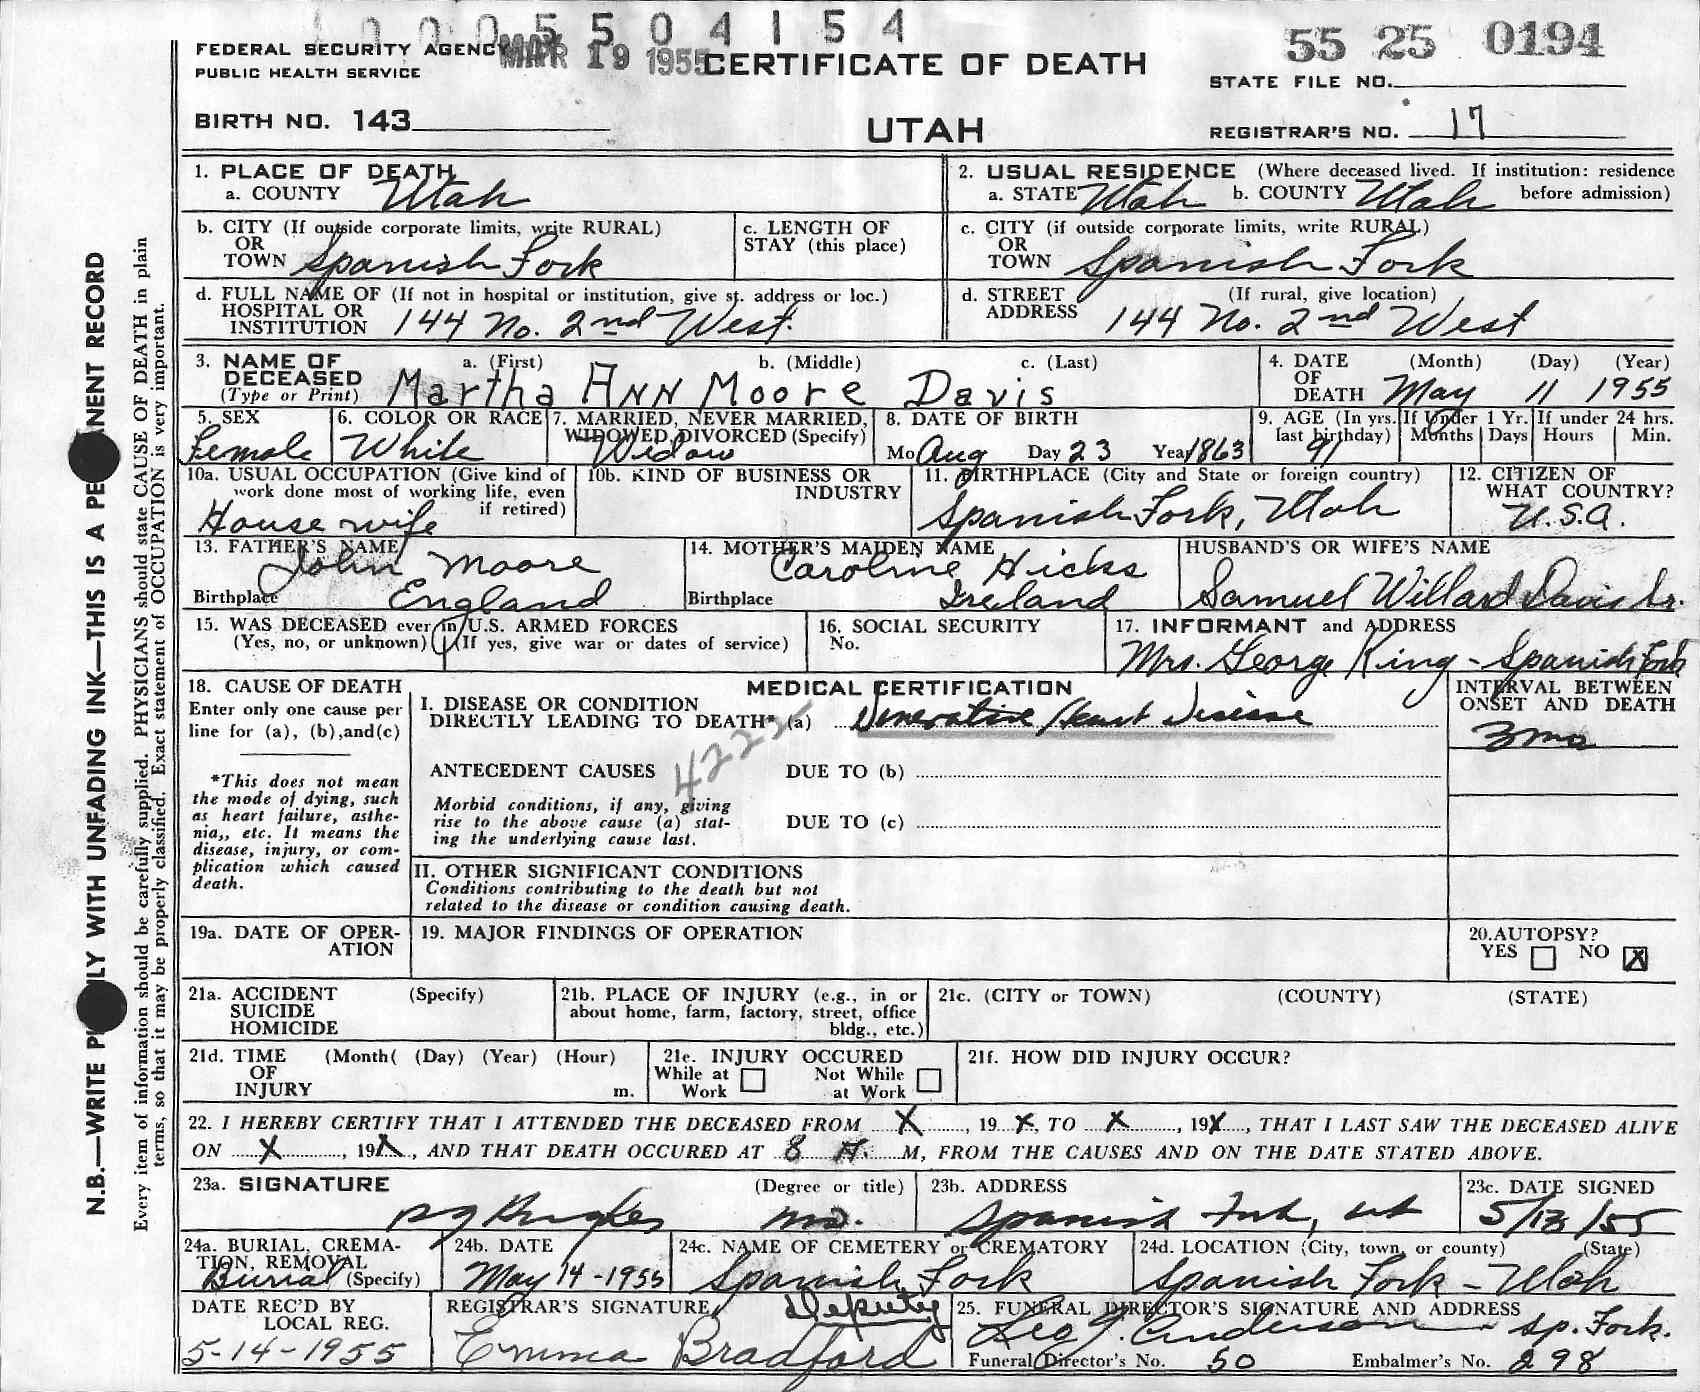 0005504154
FEDERAL SECURITY AGENCY
PUBLIC HEALTH SERVICE
19 1955
CERTIFICATE OF DEATH
55 25 0194
STATE FILE NO.
BIRTH NO. 143
UTAH
REGISTRAR'S NO. 17
N.B.—WRITE PLAINLY WITH UNFADING INK—THIS IS A PERMANENT RECORD
Every item of information should be carefully supplied. PHYSICIANS should state CAUSE OF DEATH in plain
terms, so that it may be properly classified. Exact statement of OCCUPATION is very important.
1. PLACE OF DEATH
a. COUNTY Utah
2. USUAL RESIDENCE (Where deceased lived. If institution: residence
a. STATE Utah b. COUNTY Utah before admission)
b. CITY (If outside corporate limits, write RURAL)
OR
TOWN Spanish Fork
c. LENGTH OF
STAY (this place)
c. CITY (if outside corporate limits, write RURAL)
OR
TOWN Spanish Fork
d. FULL NAME OF (If not in hospital or institution, give st. address or loc.)
HOSPITAL OR
INSTITUTION 144 No. 2nd West.
d. STREET (If rural, give location)
ADDRESS 144 No. 2nd West
3. NAME OF a. (First) b. (Middle) c. (Last)
DECEASED
(Type or Print) Martha Ann Moore Davis
4. DATE (Month) (Day) (Year)
OF
DEATH May 11 1955
5. SEX
Female
6. COLOR OR RACE
White
7. MARRIED, NEVER MARRIED,
WIDOWED, DIVORCED (Specify)
Widow
8. DATE OF BIRTH
Mo Aug Day 23 Year 1863
9. AGE (In yrs. last birthday) 91
If Under 1 Yr. Months Days
If under 24 hrs. Hours Min.
10a. USUAL OCCUPATION (Give kind of
work done most of working life, even
if retired)
House wife
10b. KIND OF BUSINESS OR
INDUSTRY
11. BIRTHPLACE (City and State or foreign country)
Spanish Fork, Utah
12. CITIZEN OF
WHAT COUNTRY?
U.S.A.
13. FATHER'S NAME
John Moore
Birthplace England
14. MOTHER'S MAIDEN NAME
Caroline Hicks
Birthplace Ireland
HUSBAND'S OR WIFE'S NAME
Samuel Willard Davis Sr.
15. WAS DECEASED ever in U.S. ARMED FORCES
(Yes, no, or unknown) (If yes, give war or dates of service)
16. SOCIAL SECURITY
No.
17. INFORMANT and ADDRESS
Mrs. George King - Spanish Fork
18. CAUSE OF DEATH
Enter only one cause per
line for (a), (b), and (c)
*This does not mean
the mode of dying, such
as heart failure, asthe-
nia,, etc. It means the
disease, injury, or com-
plication which caused
death.
MEDICAL CERTIFICATION
I. DISEASE OR CONDITION
DIRECTLY LEADING TO DEATH* (a) Heart Disease
4222
ANTECEDENT CAUSES
DUE TO (b)
Morbid conditions, if any, giving
rise to the above cause (a) stat-
ing the underlying cause last.
DUE TO (c)
II. OTHER SIGNIFICANT CONDITIONS
Conditions contributing to the death but not
related to the disease or condition causing death.
INTERVAL BETWEEN
ONSET AND DEATH
3 mo
19a. DATE OF OPER-
ATION
19. MAJOR FINDINGS OF OPERATION
20. AUTOPSY?
YES NO X
21a. ACCIDENT (Specify)
SUICIDE
HOMICIDE
21b. PLACE OF INJURY (e.g., in or
about home, farm, factory, street, office
bldg., etc.)
21c. (CITY or TOWN) (COUNTY) (STATE)
21d. TIME (Month( (Day) (Year) (Hour)
OF
INJURY m.
21e. INJURY OCCURED
While at Work Not While at Work
21f. HOW DID INJURY OCCUR?
22. I HEREBY CERTIFY THAT I ATTENDED THE DECEASED FROM X, 19 X, TO X, 19X, THAT I LAST SAW THE DECEASED ALIVE
ON X, 19X, AND THAT DEATH OCCURED AT 8 A. M, FROM THE CAUSES AND ON THE DATE STATED ABOVE.
23a. SIGNATURE (Degree or title)
M.D.
23b. ADDRESS
Spanish Fork, Ut
23c. DATE SIGNED
5/13/55
24a. BURIAL, CREMA-
TION, REMOVAL
Burial (Specify)
24b. DATE
May 14-1955
24c. NAME OF CEMETERY or CREMATORY
Spanish Fork
24d. LOCATION (City, town, or county) (State)
Spanish Fork - Utah
DATE REC'D BY
LOCAL REG.
5-14-1955
REGISTRAR'S SIGNATURE Deputy
Emma Bradford
25. FUNERAL DIRECTOR'S SIGNATURE AND ADDRESS
Anderson Sp. Fork.
Funeral Director's No. 50 Embalmer's No. 298